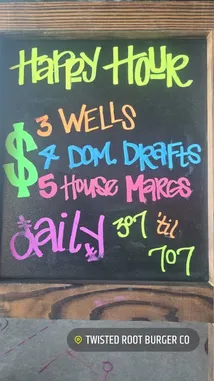 HAPPY HOUR
$
3 WELLS
4 DOM. DRAFTS
5 HOUSE MARGS
daily 307 'til
707
TWISTED ROOT BURGER CO